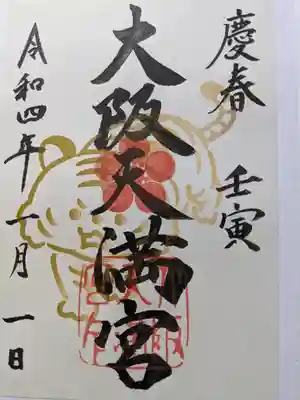 慶春 壬寅
大阪天満宮
令和四年 一月 一日